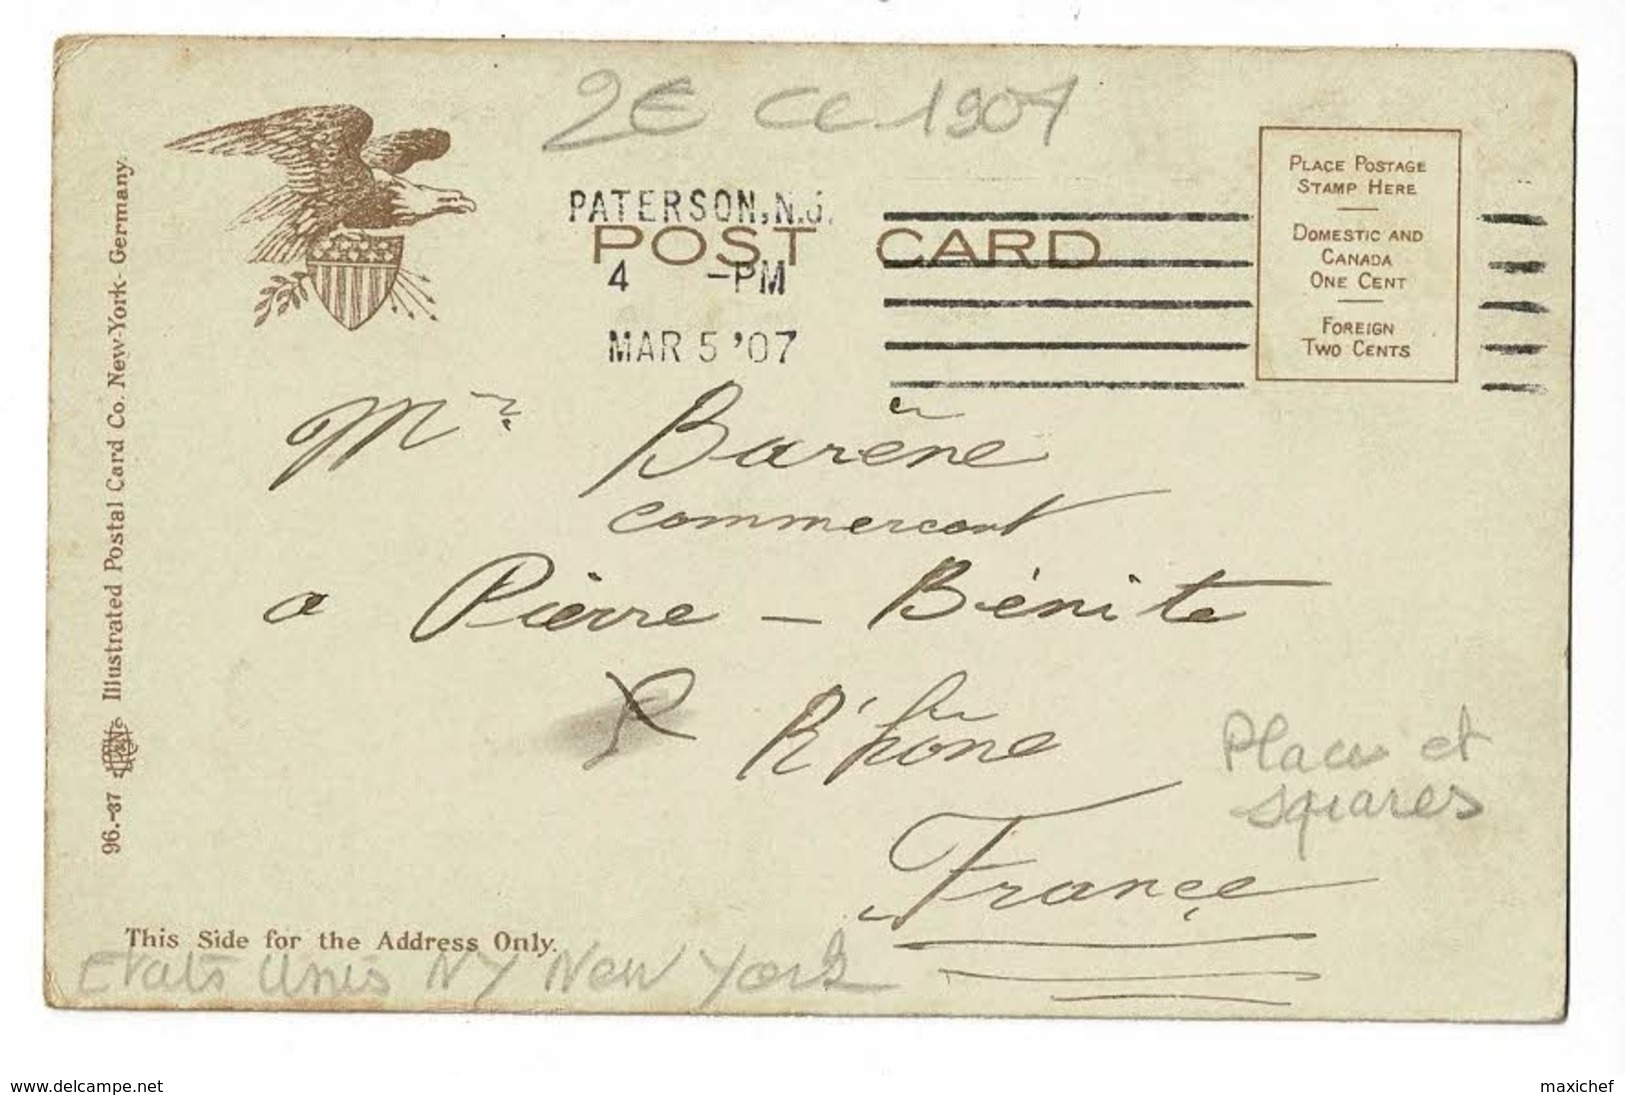 2€ CC 1907
PATERSON, N.J.
POST CARD
4 -PM
MAR 5 '07
PLACE POSTAGE
STAMP HERE
DOMESTIC AND
CANADA
ONE CENT
FOREIGN
TWO CENTS
Mr Barêne
commercant
a Pierre - Bénite
Rhône
France
Places et
squares
This Side for the Address Only.
Etats Unis NY New York
96.-87 Illustrated Postal Card Co. New-York- Germany.
www.delcampe.net
maxichef